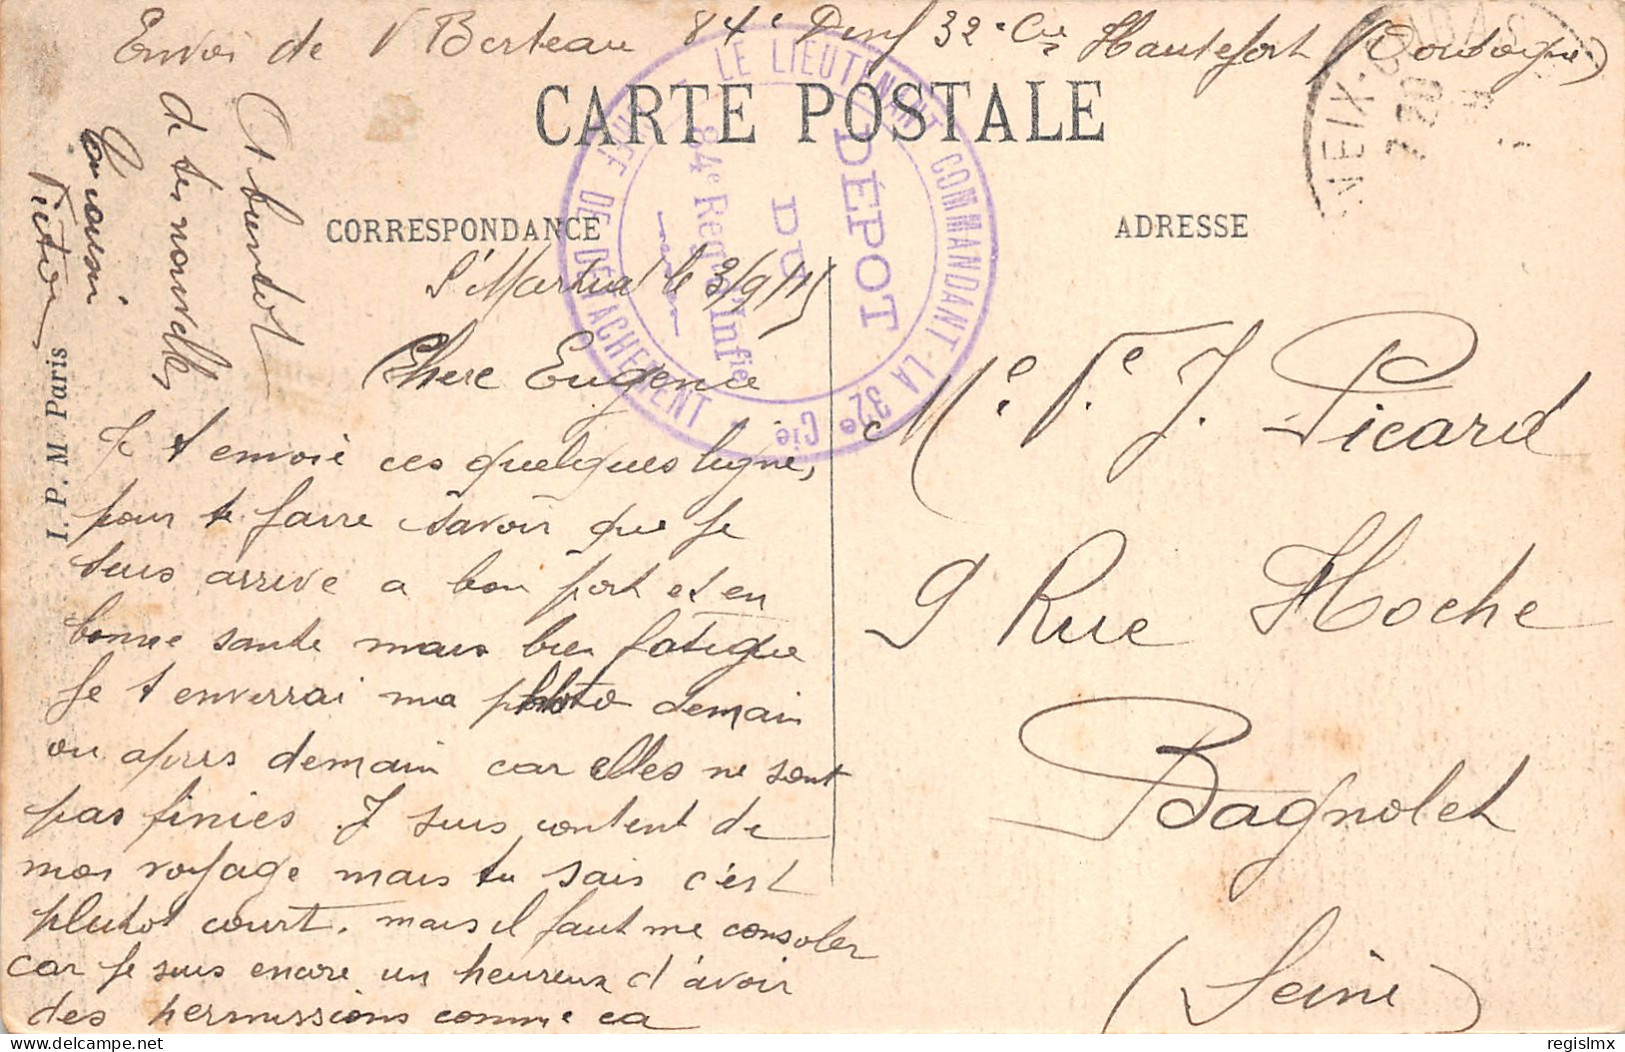 Envoi de V Berteau 84e Dinf 32e Cie Hautefort (Dordogne)
CARTE POSTALE
CORRESPONDANCE
ADRESSE
LE LIEUTENANT COMMANDANT LA 32e Cie
DE DÉTACHEMENT
DÉPOT
DU
84e Regt d'Infie
VEIX
7 20
St Martial le 3/9/15
Chere Eugenie
Je t envoie ces quelques ligne,
pour te faire savoir que je
suis arrive a bon port et en
bonne sante mais bien fatigue
Je t enverrai ma photo demain
ou apres demain car elles ne sont
pas finies Je suis content de
mon voyage mais tu sais c'est
plutot court. mais il faut me consoler
car je suis encore un heureux d'avoir
des permissions comme ca
A bientot
de tes nouvelles,
Ton cousin
Victor
I. P. M Paris
Me Ve J. Picard
9 Rue Hoche
Bagnolet
(Seine)
regislmx